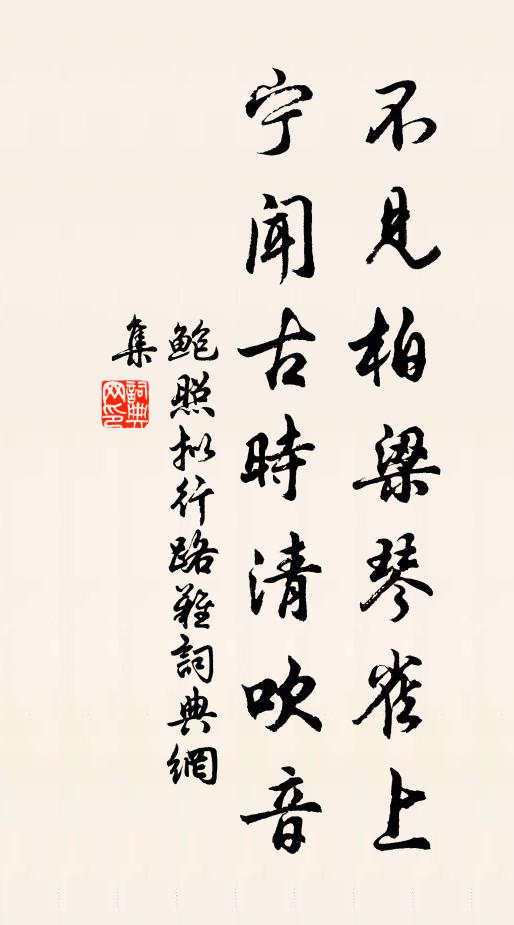 不見柏梁琴雀上
宁聞古時清吹音
鲍照拟行路難詞典網
集
詞典
网印